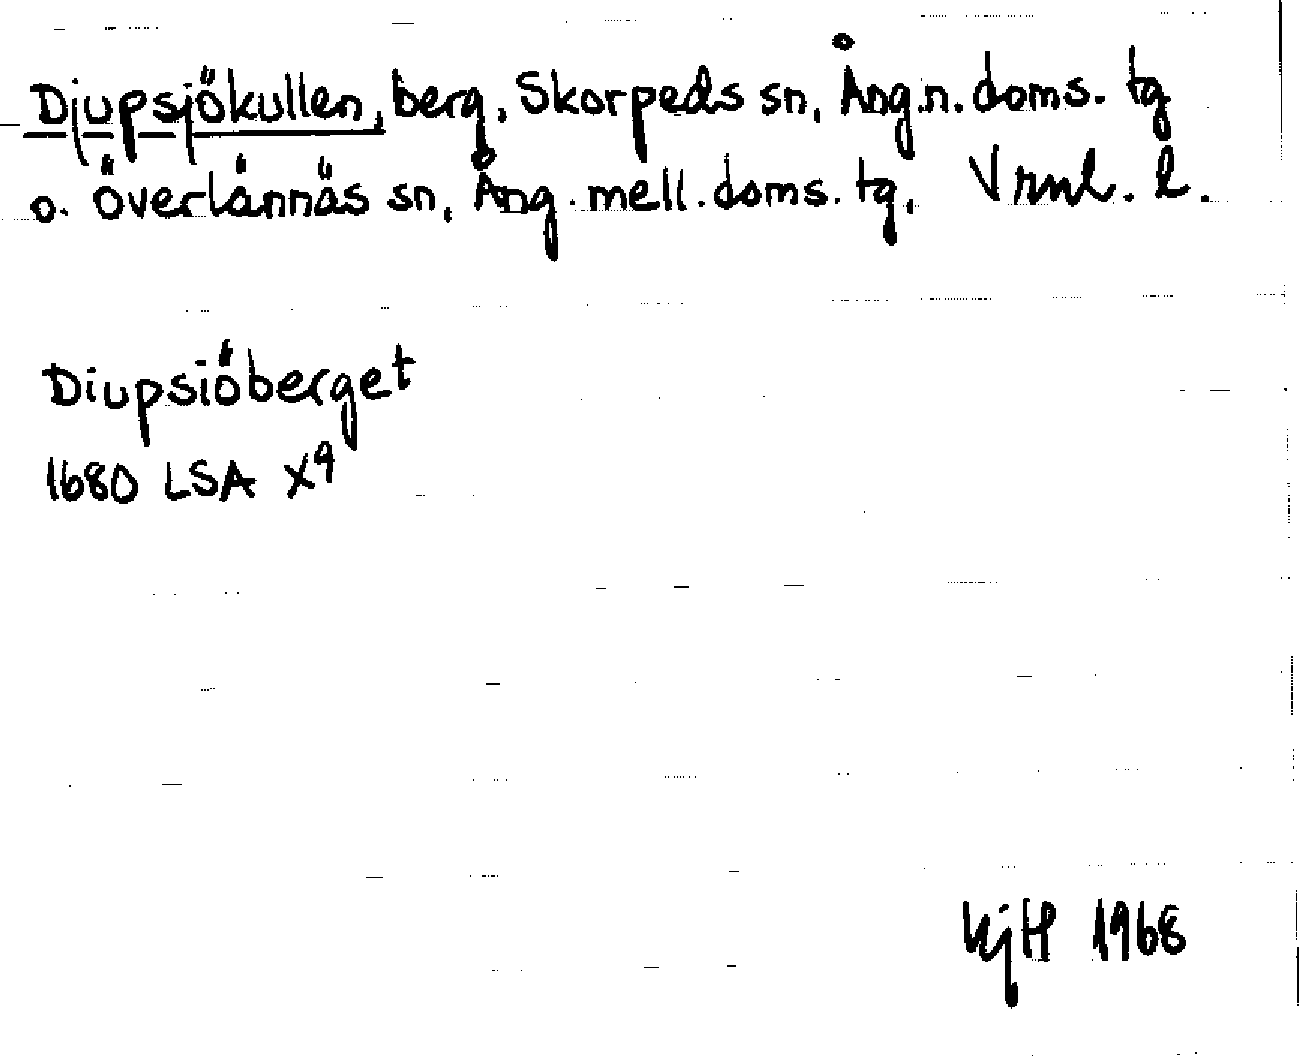 Djupsjökullen, berg, Skorpeds sn, Ång.n. doms. tg
o. Överlännäs sn, Ång. mell. doms. tg, Vrml. l.
Diupsiöberget
1680 LSA X9
KjH 1968